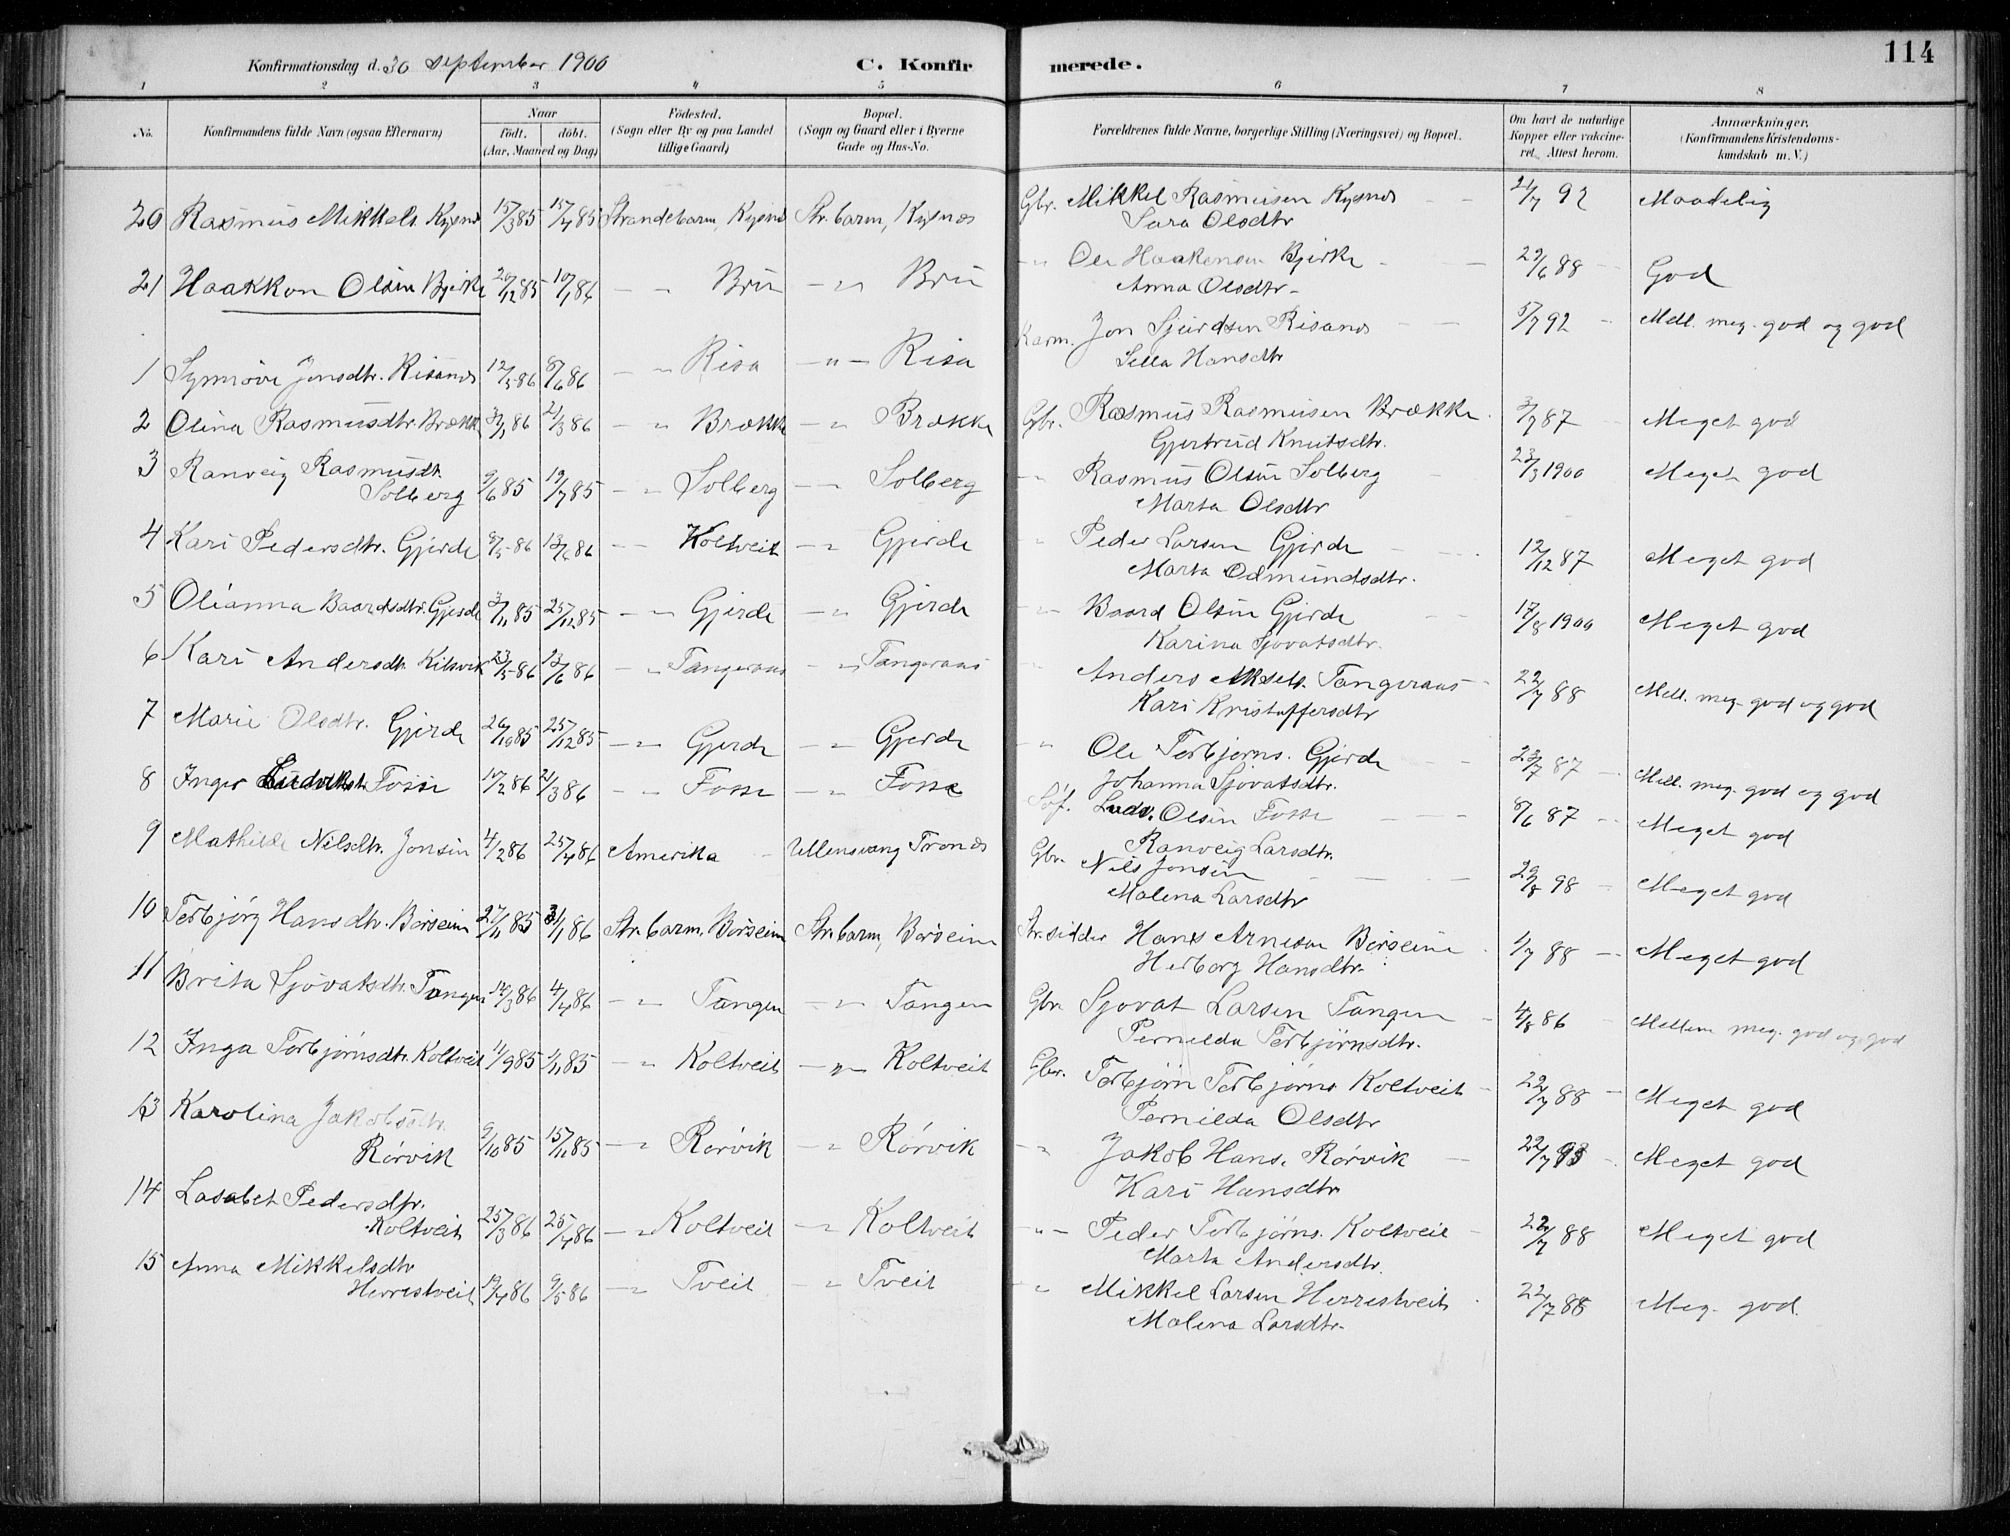 Konfirmationsdag d. 30 September 1900
C. Konfirmerede.
114
1 2 3 4 5 6 7 8
No.
Konfirmandens fulde Navn (ogsaa Efternavn)
Naar
födt. döbt.
(Aar, Maaned og Dag)
Födested.
(Sogn eller By og paa Landet
tillige Gaard)
Bopæl.
(Sogn og Gaard eller i Byerne
Gade og Hus-No.
Forældrenes fulde Navne, borgerlige Stilling (Næringsvei) og Bopæl.
Om havt de naturlige
Kopper eller vakcine-
ret. Attest herom.
Anmærkninger.
(Konfirmandens Kristendoms-
kundskab m. V.)
20 Rasmus Mikkels. Kysnes 15/3 85 15/4 85 Strandebarm, Kysnes Str.barm, Kysnes Gbr. Mikkel Rasmusen Kysnes 21/7 92 Maadelig
Sara Olsdtr
21 Haakkon Olsen Bjerke 20/12 85 10/1 86 - " Bru - " - Bru - " Ole Haakensen Bjerke 29/6 88 God
Anna Olsdtr
1 Synnöve Jonsdtr. Risanes 12/5 86 8/6 86 - " Risa - " - Risa Karm. Jon Sjurdsen Risanes 5/7 92 Mell. meg. god og god
Sella Hansdtr
2 Olina Rasmusdtr. Brække 3/1 86 21/3 86 - " Brække - " Brække Gbr. Rasmus Rasmusen Brække 3/7 87 Meget god
Gjertrud Knutsdtr.
3 Ranveig Rasmusdtr.
Solberg 9/6 85 19/7 85 - " Solberg - " Solberg - " Rasmus Olsen Solberg 23/3 1900 Meget god
Marta Olsdtr
4 Kari Pedersdtr. Gjerde 9/5 86 13/6 86 - " Koltveit - " Gjerde " Peder Larsen Gjerde 12/12 87 Meget god
Marta Odmundsdtr.
5 Olianna Baardsdtr. Gjerde 3/11 85 25/12 85 - " Gjerde - " Gjerde - " Baard Olsen Gjerde 17/8 1900 Meget god
Karina Sjovatsdtr.
6 Kari Andersdtr. Kilsvik 23/5 86 13/6 86 - " Tangeraas - " Tangeraas Anders Aksels. Tangeraas 22/7 88 Mell. meg. god og god
Kari Kristoffersdtr
7 Marie Olsdtr. Gjerde 26/10 85 25/12 85 - " Gjerde - " Gjerde " Ole Torbjørns. Gjerde 23/7 87 Mell. meg. god og god
Johanna Sjovatsdtr.
8 Inger Ludviksdt. Fosse 10/2 86 21/3 86 - " Fosse - " Fosse Söf. Ludv. Olsen Fosse 8/6 87 Meget god
Ranveig Larsdtr.
9 Mathilde Nilsdtr. Jonsen 4/2 86 25/4 86 Amerika Ullensvang Trones Gbr. Nils Jonsen 29/8 98 Meget god
Malena Larsdtr
10 Torbjörg Hansdtr. Börseim 27/11 85 31/1 86 Str.barm. Börseim Str.barm, Börseim Str.sidder Hans Arnesen Börseim 1/7 88 Meget god
Herborg Hansdtr.
11 Brita Sjovatsdtr. Tangen 14/3 86 4/4 86 - " Tangen - " Tangen Gbr. Sjovat Larsen Tangen 4/8 86 Mellem meg. god og god
Pernilda Torbjörnsdtr.
12 Inga Torbjörnsdtr. Koltveit 11/9 85 1/11 85 - " Koltveit - " - Koltveit Gbr. Torbjörn Torbjörns Koltveit 22/7 88 Meget god
Pernilda Olsdtr
13 Karolina Jakobsdtr.
Rörvik 9/10 85 15/11 85 - " Rörvik " Rörvik " Jakob Hans. Rörvik 22/7 93 Meget god
Kari Hansdtr
14 Lasabet Pedersdtr.
Koltveit 25/3 86 25/4 86 - " Koltveit - " Koltveit - " - Peder Torbjörns. Koltveit 22/7 88 Meget god
Marta Andersdtr.
15 Anna Mikkelsdtr
Herrestveit 19/4 86 9/5 86 - " Tveit - " Tveit " Mikkel Larsen Herrestveit 22/7 88 Meg. god.
Malena Larsdtr.